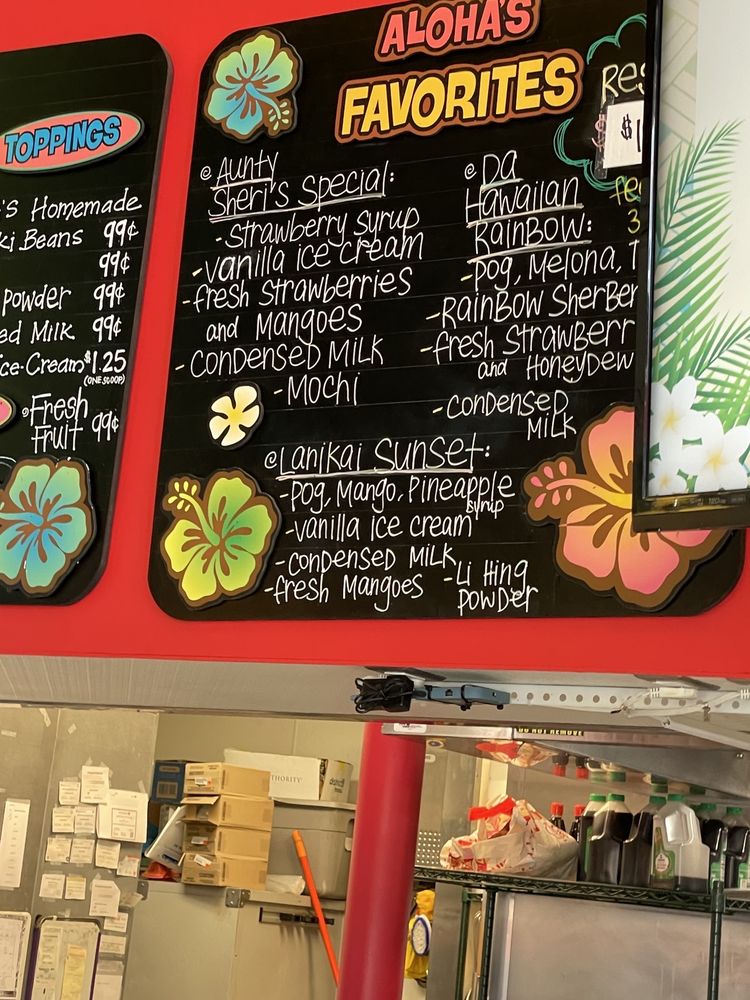 TOPPINGS
's Homemade
ki Beans 99¢
99¢
Powder 99¢
ed Milk 99¢
ice-Cream $1.25
(ONE SCOOP)
Fresh
Fruit 99¢
ALOHA'S
FAVORITES
Aunty
Sheri's Special:
-Strawberry syrup
-vanilla ice cream
-fresh Strawberries
and Mangoes
-Condensed Milk
-Mochi
Da
Hawaiian
RainBow:
-Pog, Melona, T
-RainBow SherBer
-fresh Strawberr
and HoneyDew
-Condensed
Milk
Lanikai Sunset:
-Pog, Mango, Pineapple
syrup
-vanilla ice cream
-condensed Milk
-fresh Mangoes
-Li Hing
Powder
Res
$1
3
DO NOT REMOVE
THORITY